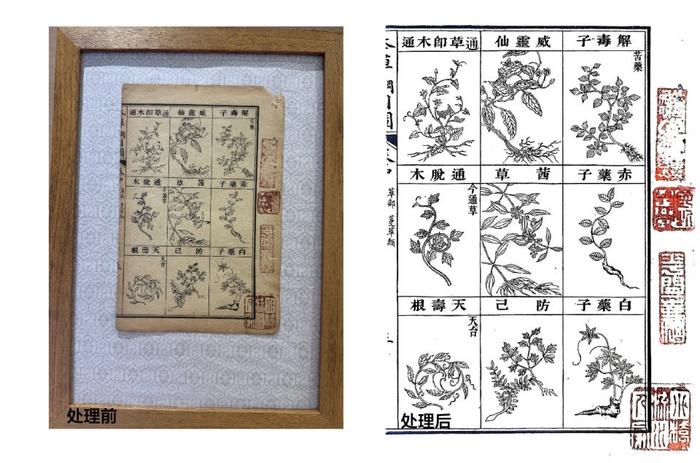 解毒子 威靈仙 通草卽木通
赤藥子 茜草 通脫木
白藥子 防己 天壽根
天台
处理前
解毒子 威靈仙 通草卽木通
苦藥
赤藥子 茜草 通脫木
今通草
草部 蔓草類
白藥子 防己 天壽根
天台
处理后